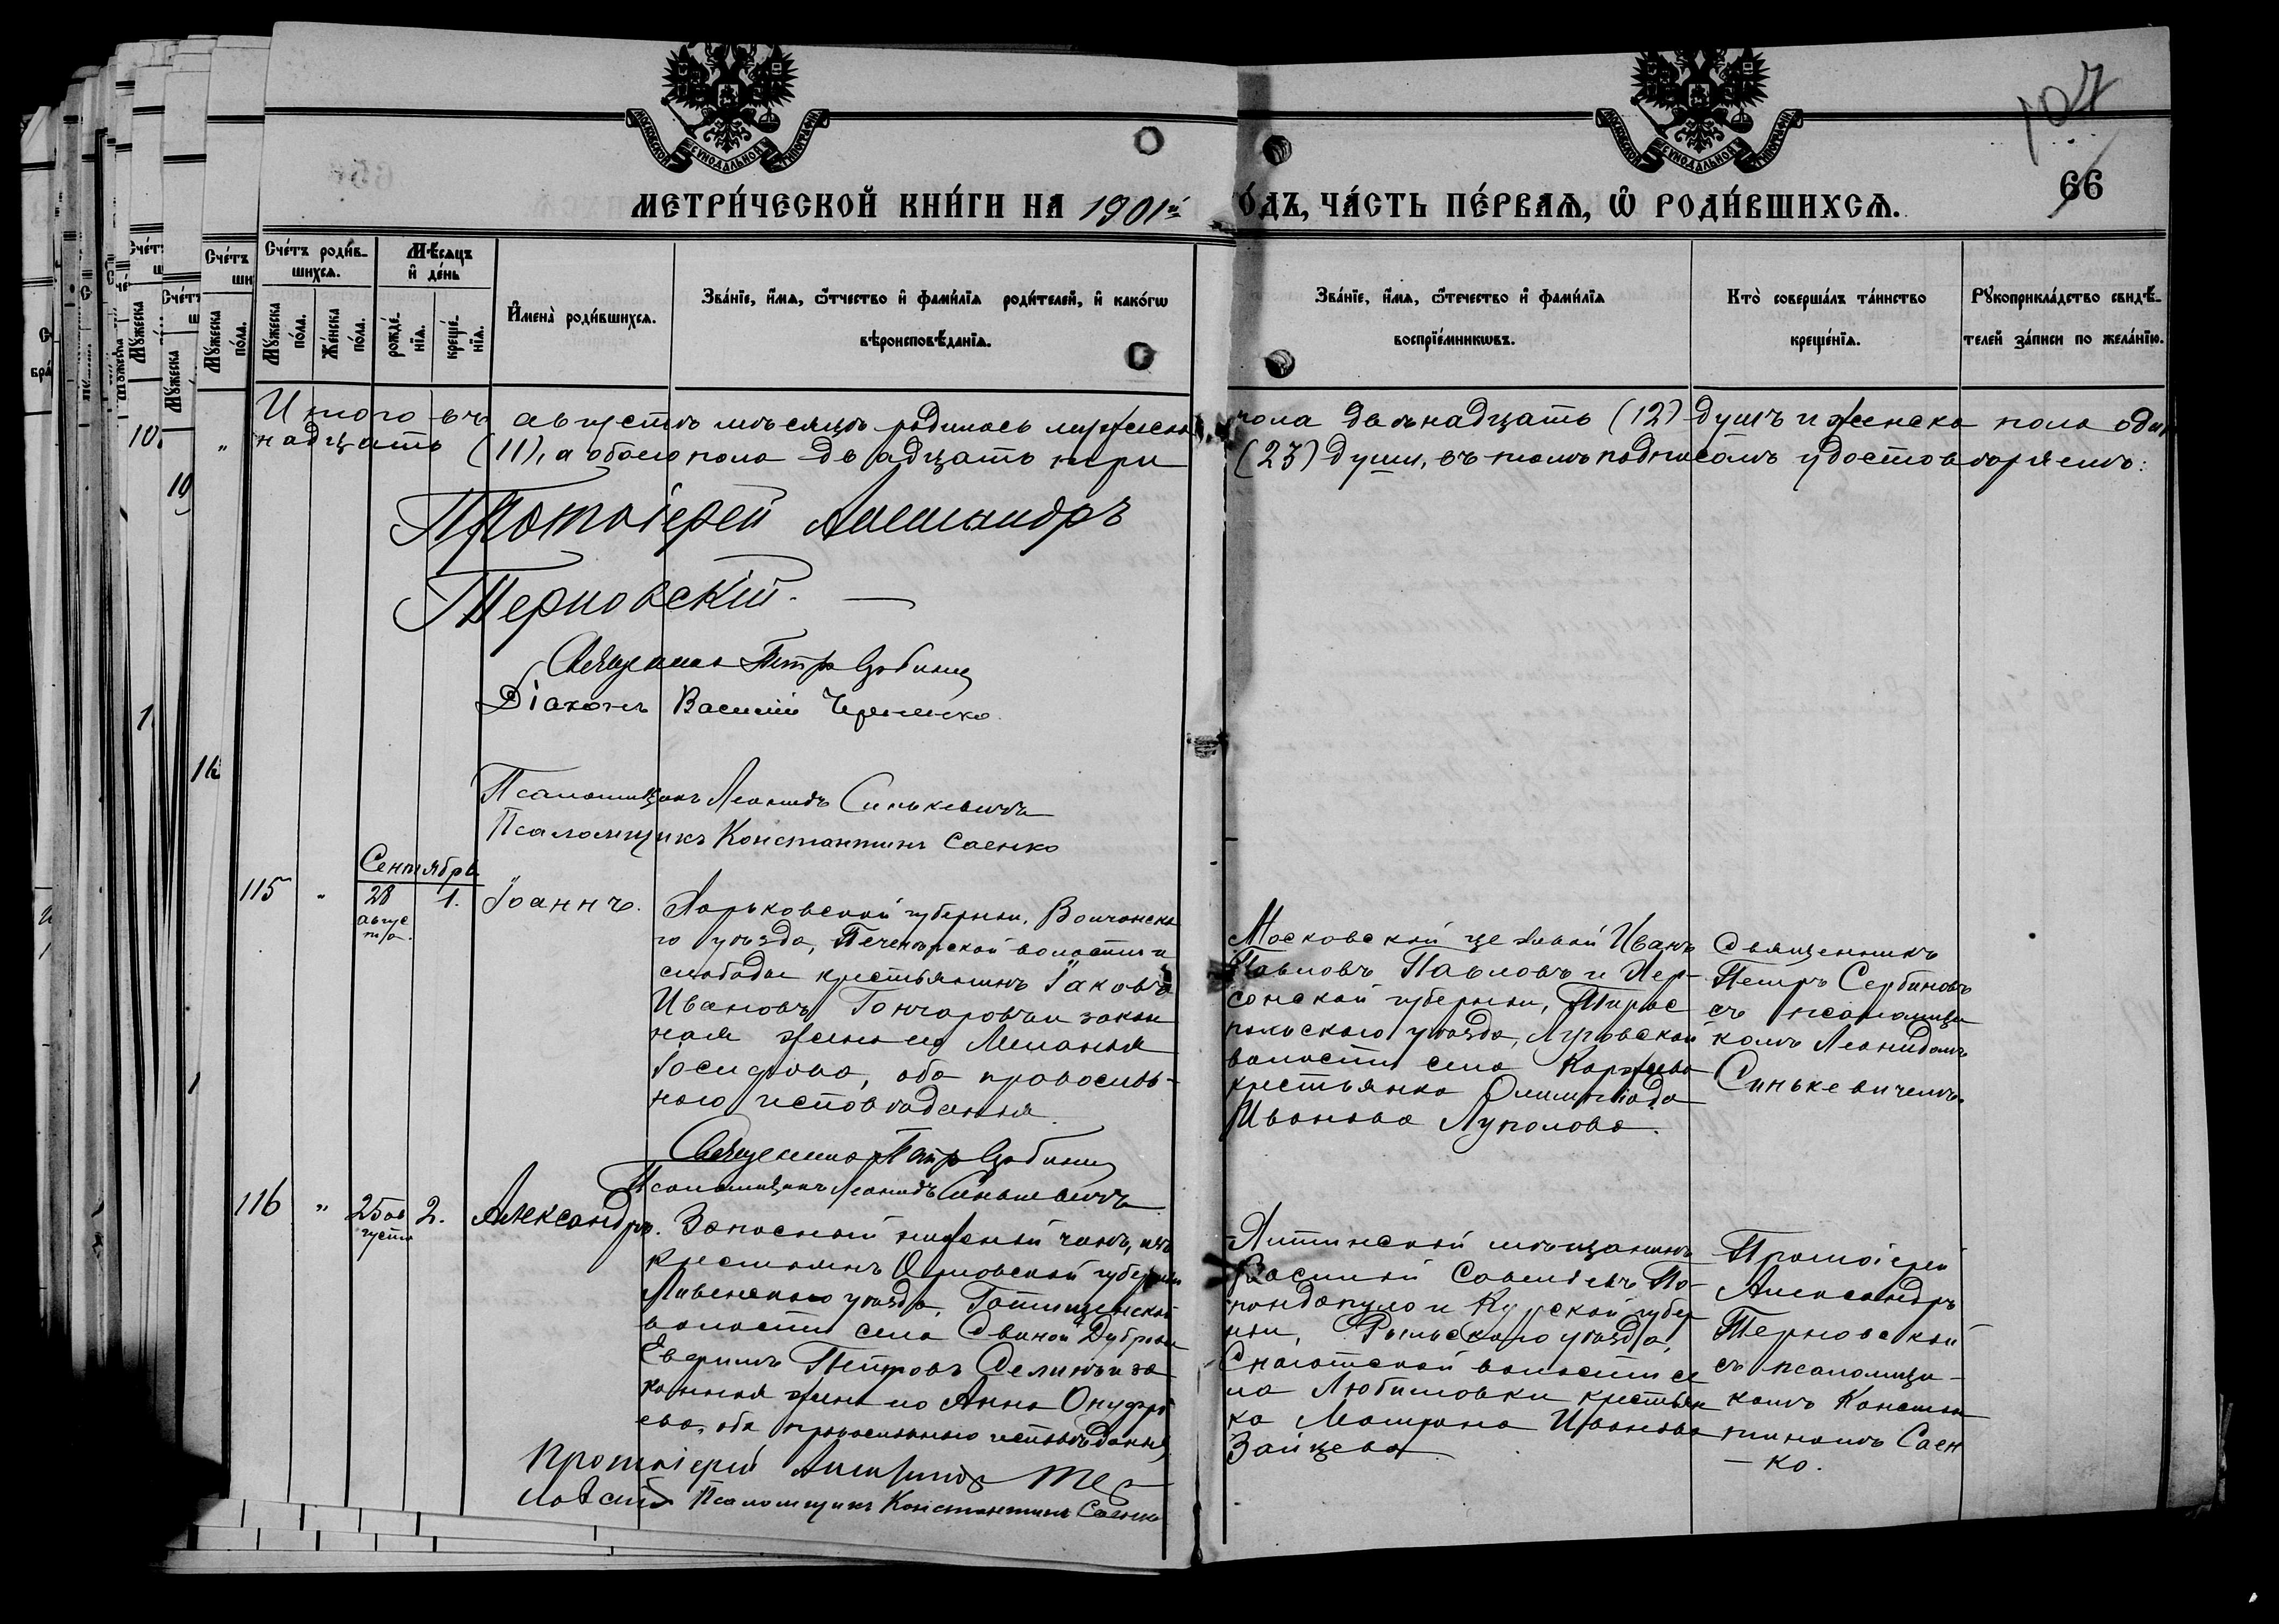 МОСКОВСКОЙ СΥНОДАЛЬНОЙ ТИПОГРАФИИ
МОСКОВСКОЙ СΥНОДАЛЬНОЙ ТИПОГРАФИИ
107
66
МЕТРИ́ЧЕСКОЙ КНИ́ГИ НА 1901й ГО́ДЪ, ЧА́СТЬ ПЕ́РВАѦ, Ѡ РОДИ́ВШИХСѦ.
Счéтъ роди́в-
шихсѧ.
Мѣ́сѧцъ
и҆ де́нь
Мꙋ́жеска
по́ла.
Же́нска
по́ла.
рожде́-
нїѧ.
креще́-
нїѧ.
И҆мена̀ роди́вшихсѧ.
Зва́нїе, и҆́мѧ, ѻ҆́тчество и҆ фами́лїѧ роди́телей, и҆ како́гѡ
вѣроисповѣ́данїѧ.
Зва́нїе, и҆́мѧ, ѻ҆́течество и҆ фами́лїѧ
воспрїе́мникѡвъ.
Кто̀ соверша́лъ та́инство
креще́нїѧ.
Рꙋкоприкла́дство свидѣ́-
телей за́писи по жела́нїю.
Итого въ августѣ мѣсяцѣ родилось мужеска пола двѣнадцать (12) душъ и женска пола один
надцать (11), а обоего пола двадцать три (23) души, въ томъ подписомъ удостовѣряемъ:
Протоіерей Александръ
Терновскій.
Священникъ Петръ Сербиновъ
Діаконъ Василій
Псаломщикъ Леонидъ Синькевичъ
Псаломщикъ Константинъ Саенко
Сентябрь
115 " 28 авгус та. 1. Іоаннъ.
Харьковской губерніи, Волчанска
го уѣзда, Печенѣжской волости и
слободы крестьянинъ Іаковъ
Ивановъ Гончаровъ и закон
ная жена его Меланія
Іосифова, оба православ-
наго исповѣданія.
Московской цеховой Иванъ
Павловъ Павловъ и Хер-
сонской губерніи, Тирас
польскаго уѣзда,
волости села Коржева
крестьянка Олимпіада
Иванова Луполова.
Священникъ
Петръ Сербиновъ
съ псаломщи
комъ Леонидомъ
Синькевичемъ.
Священникъ Петръ Сербиновъ
Псаломщикъ Леонидъ Синькевичъ
116 " 25 ав густа 2. Александръ.
Запасный нижній чинъ, изъ
крестьянъ Орловской губерніи
Ливенскаго уѣзда,
волости села Свиной Дубровы
Евфимъ Петровъ Селинъ и за
конная жена его Анна Онуфрі
ева, оба православнаго исповѣданія,
Ялтинскій мѣщанинъ
Василій Савельевъ По-
пандопуло и Курской губер
ніи, Рыльскаго уѣзда,
Снагостской волости се
ла Любимовки крестьян
ка Матрона Иванова
Зайцева
Протоіерей
Александръ
Терновскій
съ псаломщи-
комъ Констан
тиномъ Саен
-ко.
Протоіерей Александръ Тер
новскій Псаломщикъ Константинъ Саенко